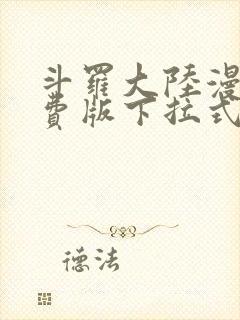 斗羅大陸漫
費版下拉式
德法